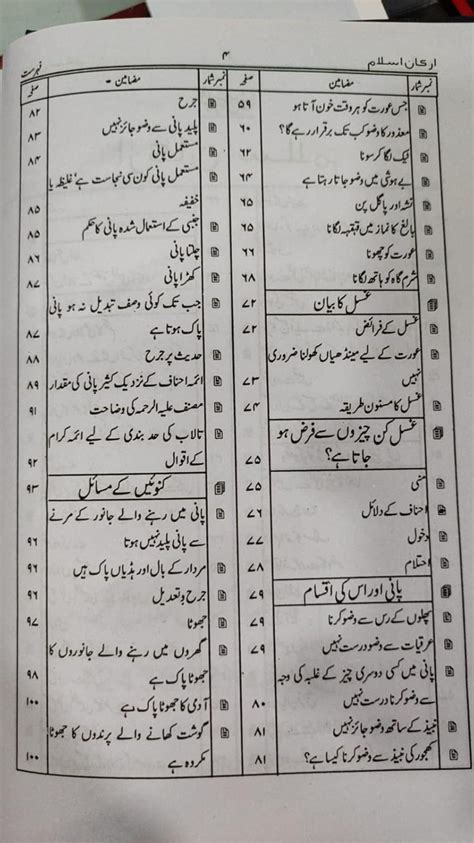 ارکان اسلام
۴
فہرست
نمبر شمار مضامین صفحہ
جس عورت کو ہر وقت خون آتا ہو ۵۹
معذور کا وضو کب تک برقرار رہے گا؟ ۶۰
ٹیک لگا کر سونا ۶۲
بے ہوشی میں وضو جاتا رہتا ہے ۶۴
نشہ اور پاگل پن ۶۵
بالغ کا نماز میں قہقہہ لگانا ۶۵
عورت کو چھونا ۶۶
شرم گاہ کو ہاتھ لگانا ۶۸
غسل کا بیان ۷۲
غسل کے فرائض ۷۲
عورت کے لیے مینڈھیاں کھولنا ضروری
نہیں ۷۳
غسل کا مسنون طریقہ ۷۴
غسل کن چیزوں سے فرض ہو
جاتا ہے؟ ۷۵
منی ۷۵
احناف کے دلائل ۷۶
دخول ۷۷
احتلام ۷۸
پانی اور اس کی اقسام ۷۹
پھلوں کے رس سے وضو کرنا ۷۹
عرقیات سے وضو درست نہیں ۷۹
پانی میں کسی دوسری چیز کے غلبہ کی وجہ
سے وضو کرنا درست نہیں ۸۰
نبیذ کے ساتھ وضو جائز نہیں ۸۱
کھجور کی نبیذ سے وضو کرنا کیسا ہے؟ ۸۱
نمبر شمار مضامین - صفحہ
جرح ۸۲
پلید پانی سے وضو جائز نہیں ۸۳
مستعمل پانی ۸۴
مستعمل پانی کون سی نجاست ہے' غلیظہ یا
خفیفہ ۸۵
جنبی کے استعمال شدہ پانی کا حکم ۸۵
چلتا پانی ۸۶
کھڑا پانی ۸۷
جب تک کوئی وصف تبدیل نہ ہو پانی
پاک ہوتا ہے ۸۷
حدیث پر جرح ۸۸
ائمہ احناف کے نزدیک کثیر پانی کی مقدار ۸۹
مصنف علیہ الرحمہ کی وضاحت ۹۱
تالاب کی حد بندی کے لیے ائمہ کرام
کے اقوال ۹۲
کنوئیں کے مسائل ۹۳
پانی میں رہنے والے جانور کے مرنے
سے پانی پلید نہیں ہوتا ۹۶
مردار کے بال اور ہڈیاں پاک ہیں ۹۶
جرح و تعدیل ۹۶
جھوٹا ۹۷
گھروں میں رہنے والے جانوروں کا
جھوٹا پاک ہے ۹۸
آدمی کا جھوٹا پاک ہے ۱۰۰
گوشت کھانے والے پرندوں کا جھوٹا
مکروہ ہے ۱۰۰